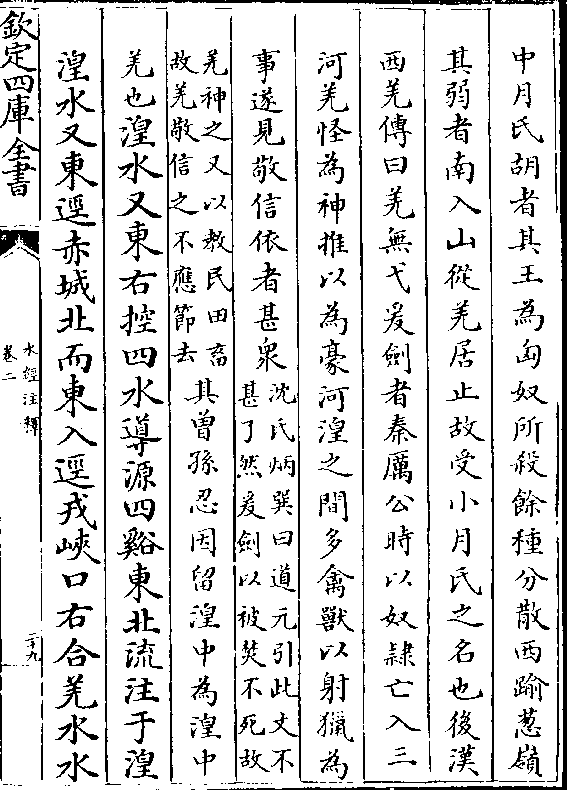 中月氏胡者其王為匈奴所殺餘種分散西踰葱嶺
其弱者南入山從羌居止故受小月氏之名也後漢
西羌傳曰羌無弋爰劍者秦厲公時以奴隷亡入三
河羌怪為神推以為豪河湟之間多禽獸以射獵為
事遂見敬信依者甚衆
沈氏炳巽曰道元引此文不
甚了然爰劍以被焚不死故
羌神之又以教民田畜
故羌敬信之不應節去
其曾孫忍因留湟中為湟中
羌也湟水又東右控四水導源四谿東北流注于湟
湟水又東逕赤城北而東入逕戎峽口右合羌水水
欽定四庫全書
水經注釋
卷二
二十九